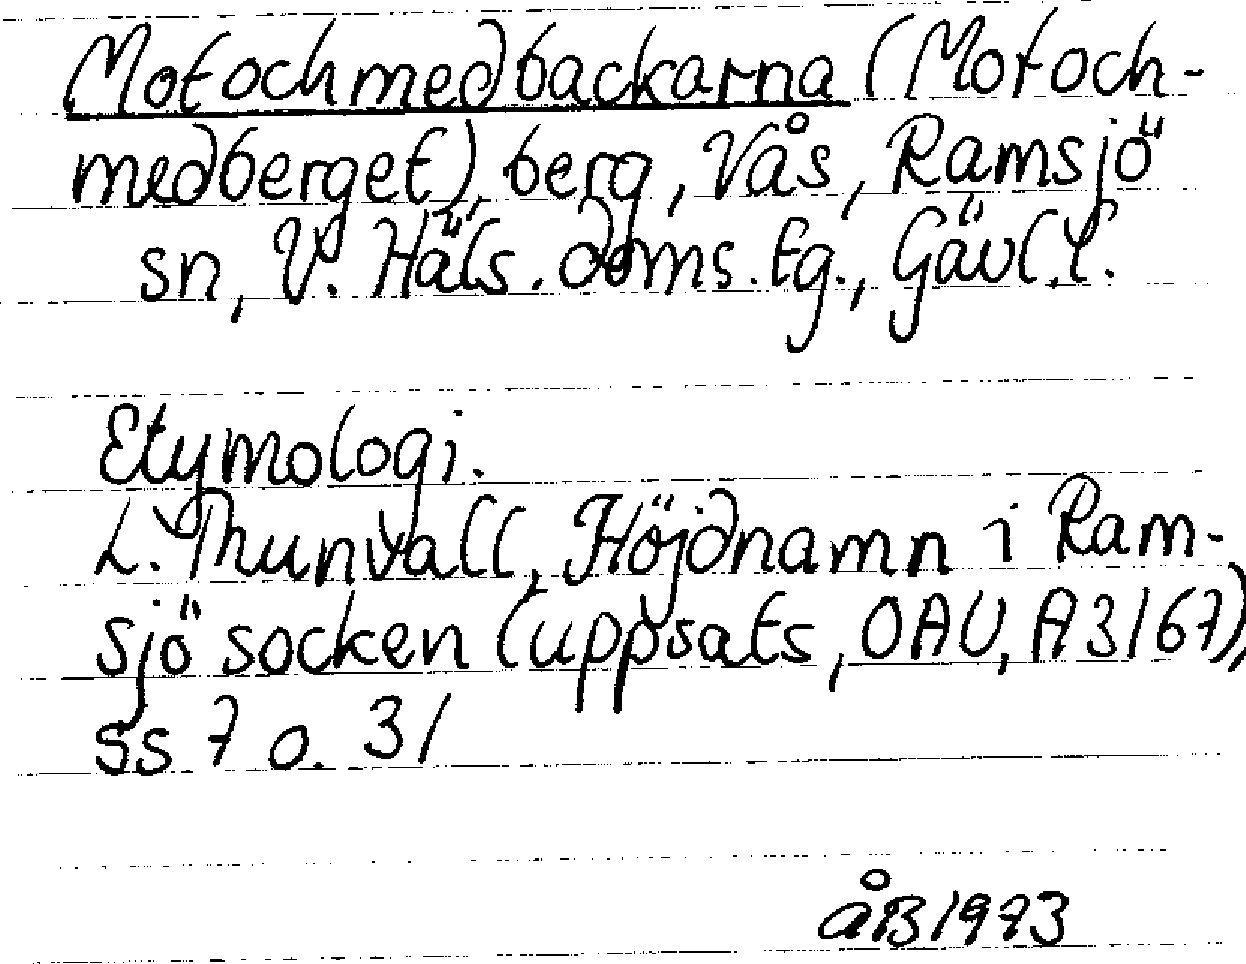 Motochmedbackarna (Motoch-
medberget), berg, Vås, Ramsjö
sn, V. Häls. doms.tg., Gävl.l.
Etymologi.
L. Thunvall, Höjdnamn i Ram-
sjö socken (uppsats, OAU, A3167),
ss 7 o. 31
ÅB 1973